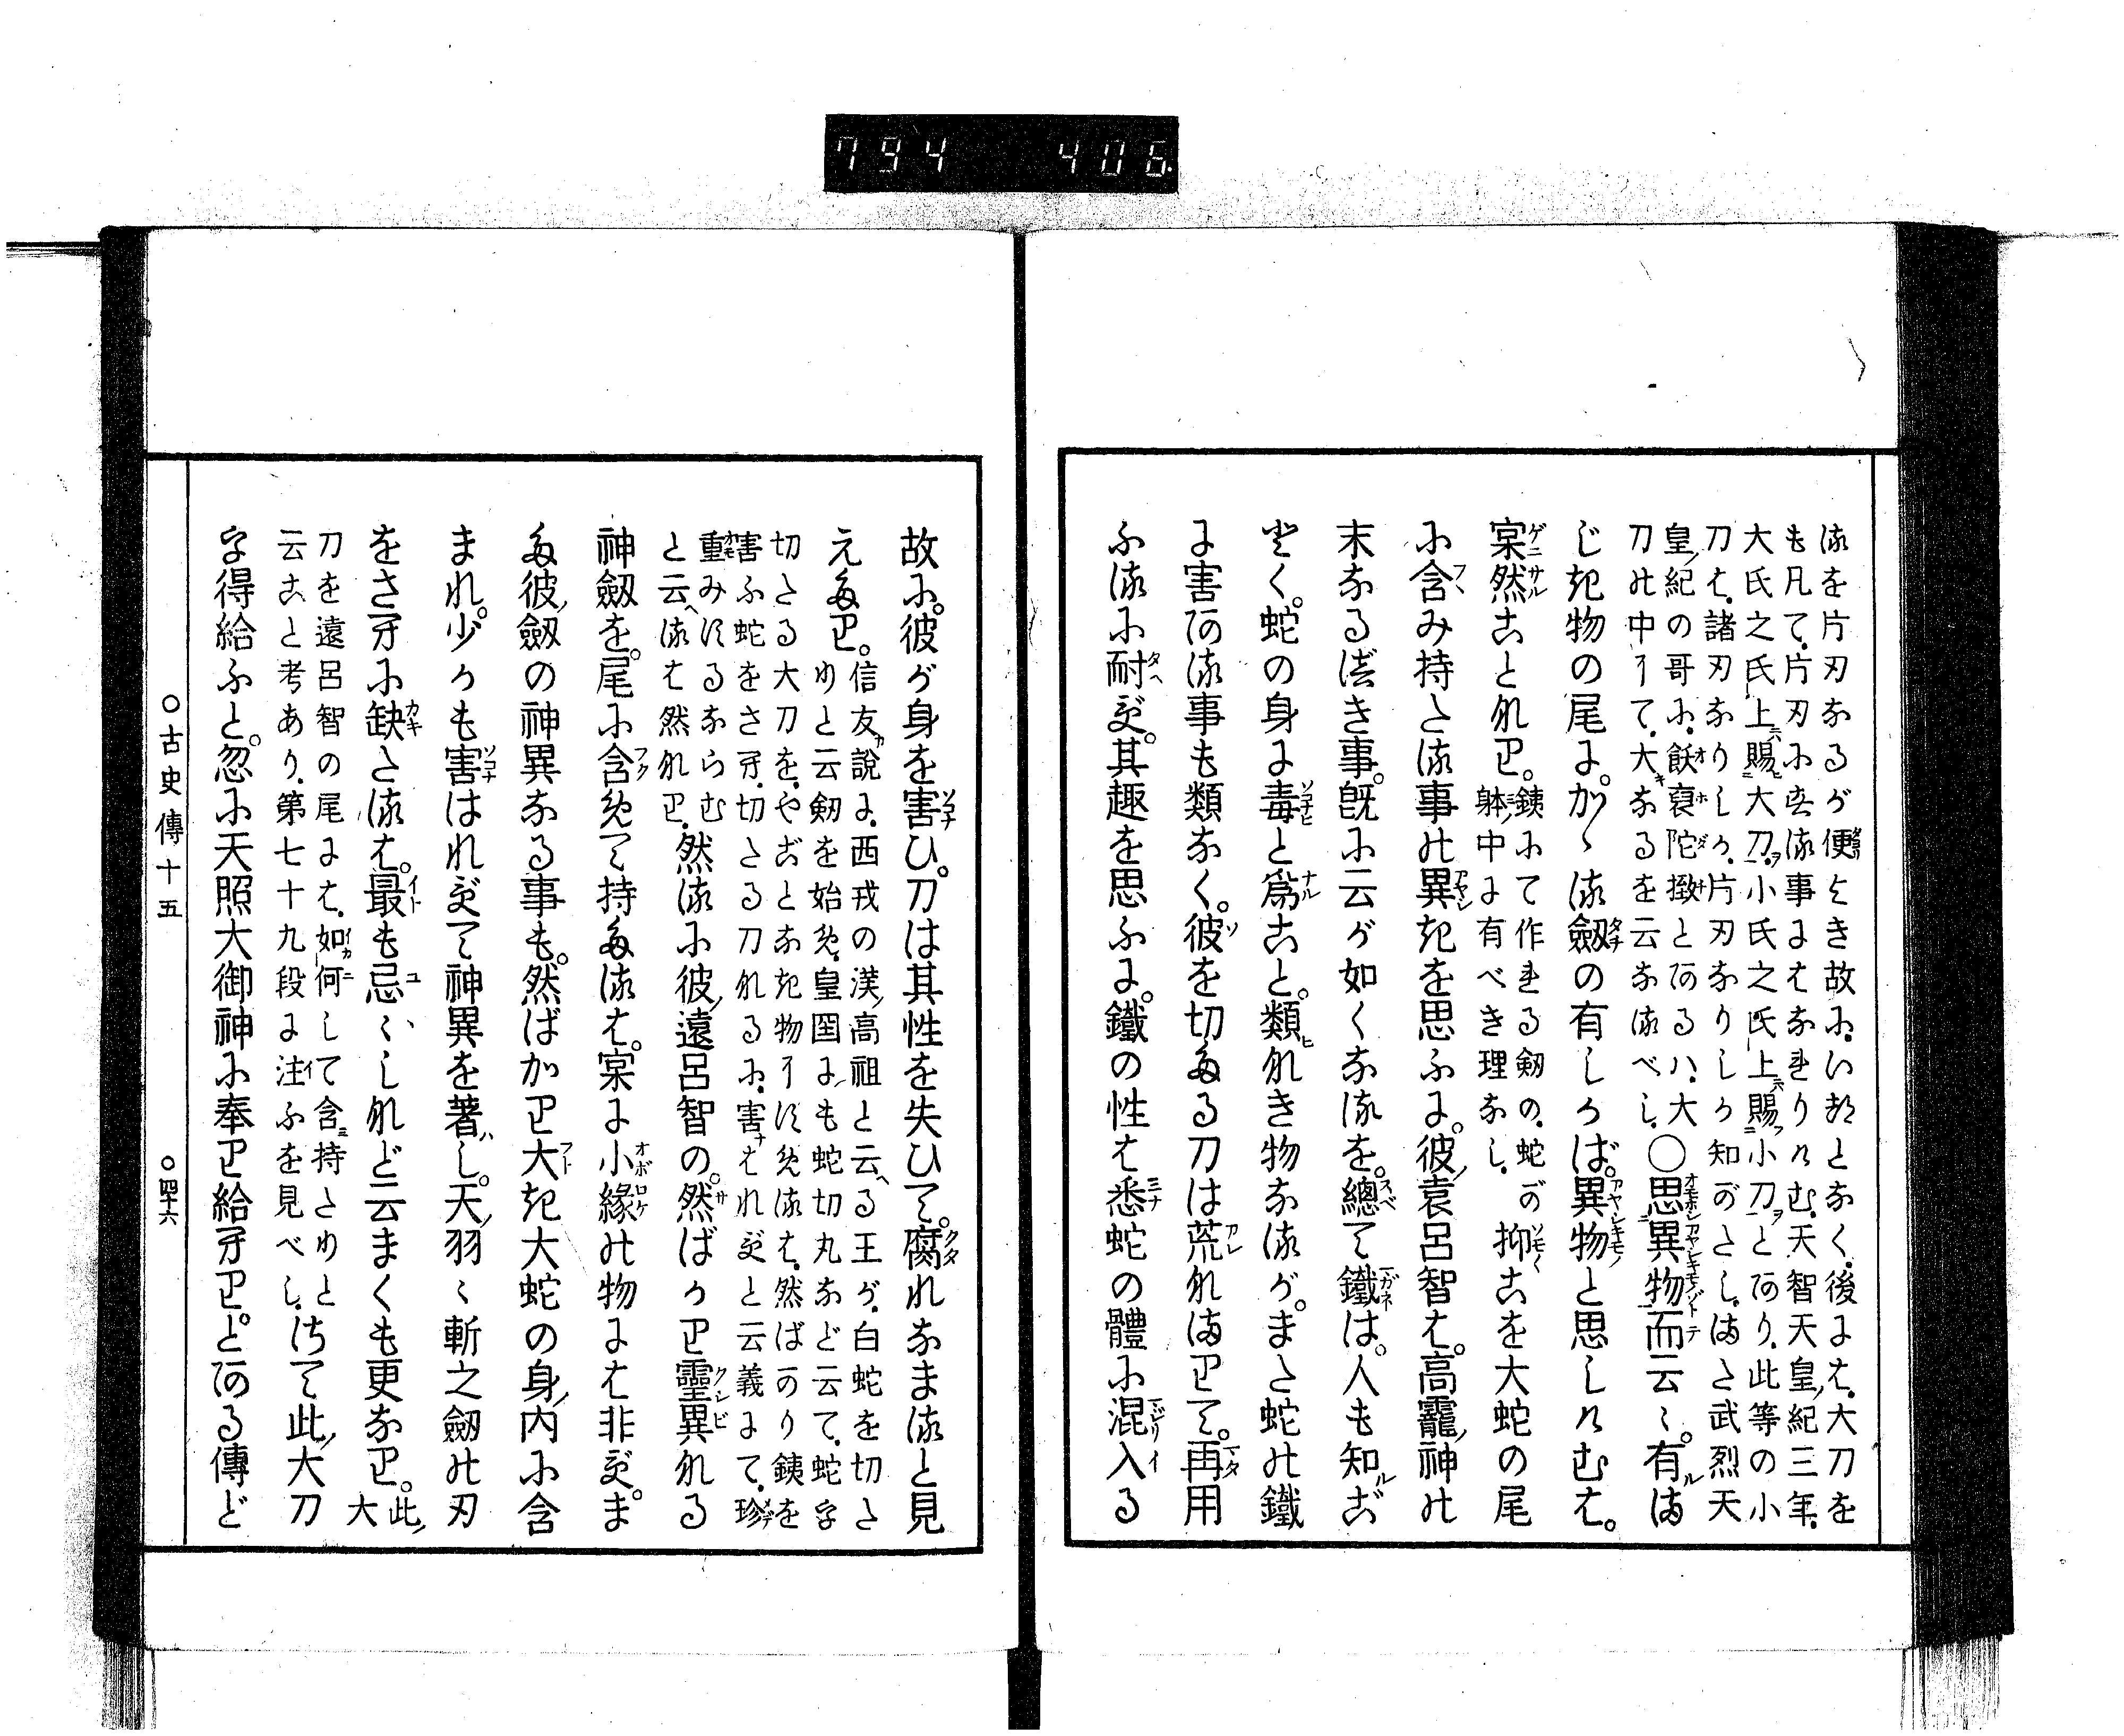 794 406
流を片刃なるが便よき故に、いつとなく、後には、大刀を
も凡て、片刃に爲る事にはなれりけむ、天智天皇ノ紀三年、
大氏之氏上ニ賜ヒ大刀ヲ、小氏之氏上ニ賜フ小刀ヲとあり、此等の小
刀は、諸刃なりしか、片刃なりしか知がたし、また武烈天
皇ノ紀の哥に、飫裒陀撽とあるハ、大
刀の中にて、大キなるを云なるべし、○思異物而云々。有ルま
じき物の尾に。かゝる劔の有しかば。異物と思しけむは。
寔然ことなり。銕にて作れる剱の、蛇が
躰ノ中に有べき理なし、抑これを大蛇の尾
に含み持たる事の異きを思ふに。彼ノ袁呂智は。高龗ノ神の
末なるべき事。既に云が如くなるを。總て鐵は。人も知ルご
とく。蛇の身に毒と爲こと。類なき物なるが。また蛇の鐵
に害ある事も類なく。彼を切たる刀は荒なまりて。再用
ふるに耐ず。其趣を思ふに。鐵の性は悉蛇の體に混入る
故に。彼が身を害ひ。刀は其性を失ひて。腐れなまると見
えたり。信友ガ說に、西戎の漢ノ高祖と云ヘる王が、白蛇を切た
りと云剱を始め、皇国にも蛇切丸など云て、蛇を
切たる大刀を、やごとなき物にすめるは、然ばかり銕を
害ふ蛇をさへ、切たる刀なるに、害はれずと云義にて、珍
重みするならむ
と云ヘるは然なり、然るに彼ノ遠呂智の。然ばかり靈異なる
神劔を。尾に含めて持たるは。寔に小緣の物には非ず。ま
た彼ノ劔の神異なる事も。然ばかり大き大蛇の身ノ内に含
まれ。少かも害はれずて神異を著ハし。天ノ羽々斬之劔の刃
をさへに缺たるは。最も忌々しなど云まくも更なり。此ノ大
刀を遠呂智の尾には、如何にして含ミ持たりと
云こと考あり、第七十九段に注ふを見べし、さて此ノ大刀
を得給ふと。忽に天照大御神に奉り給へり。とある傳ど
○古史傳十五
○四十六